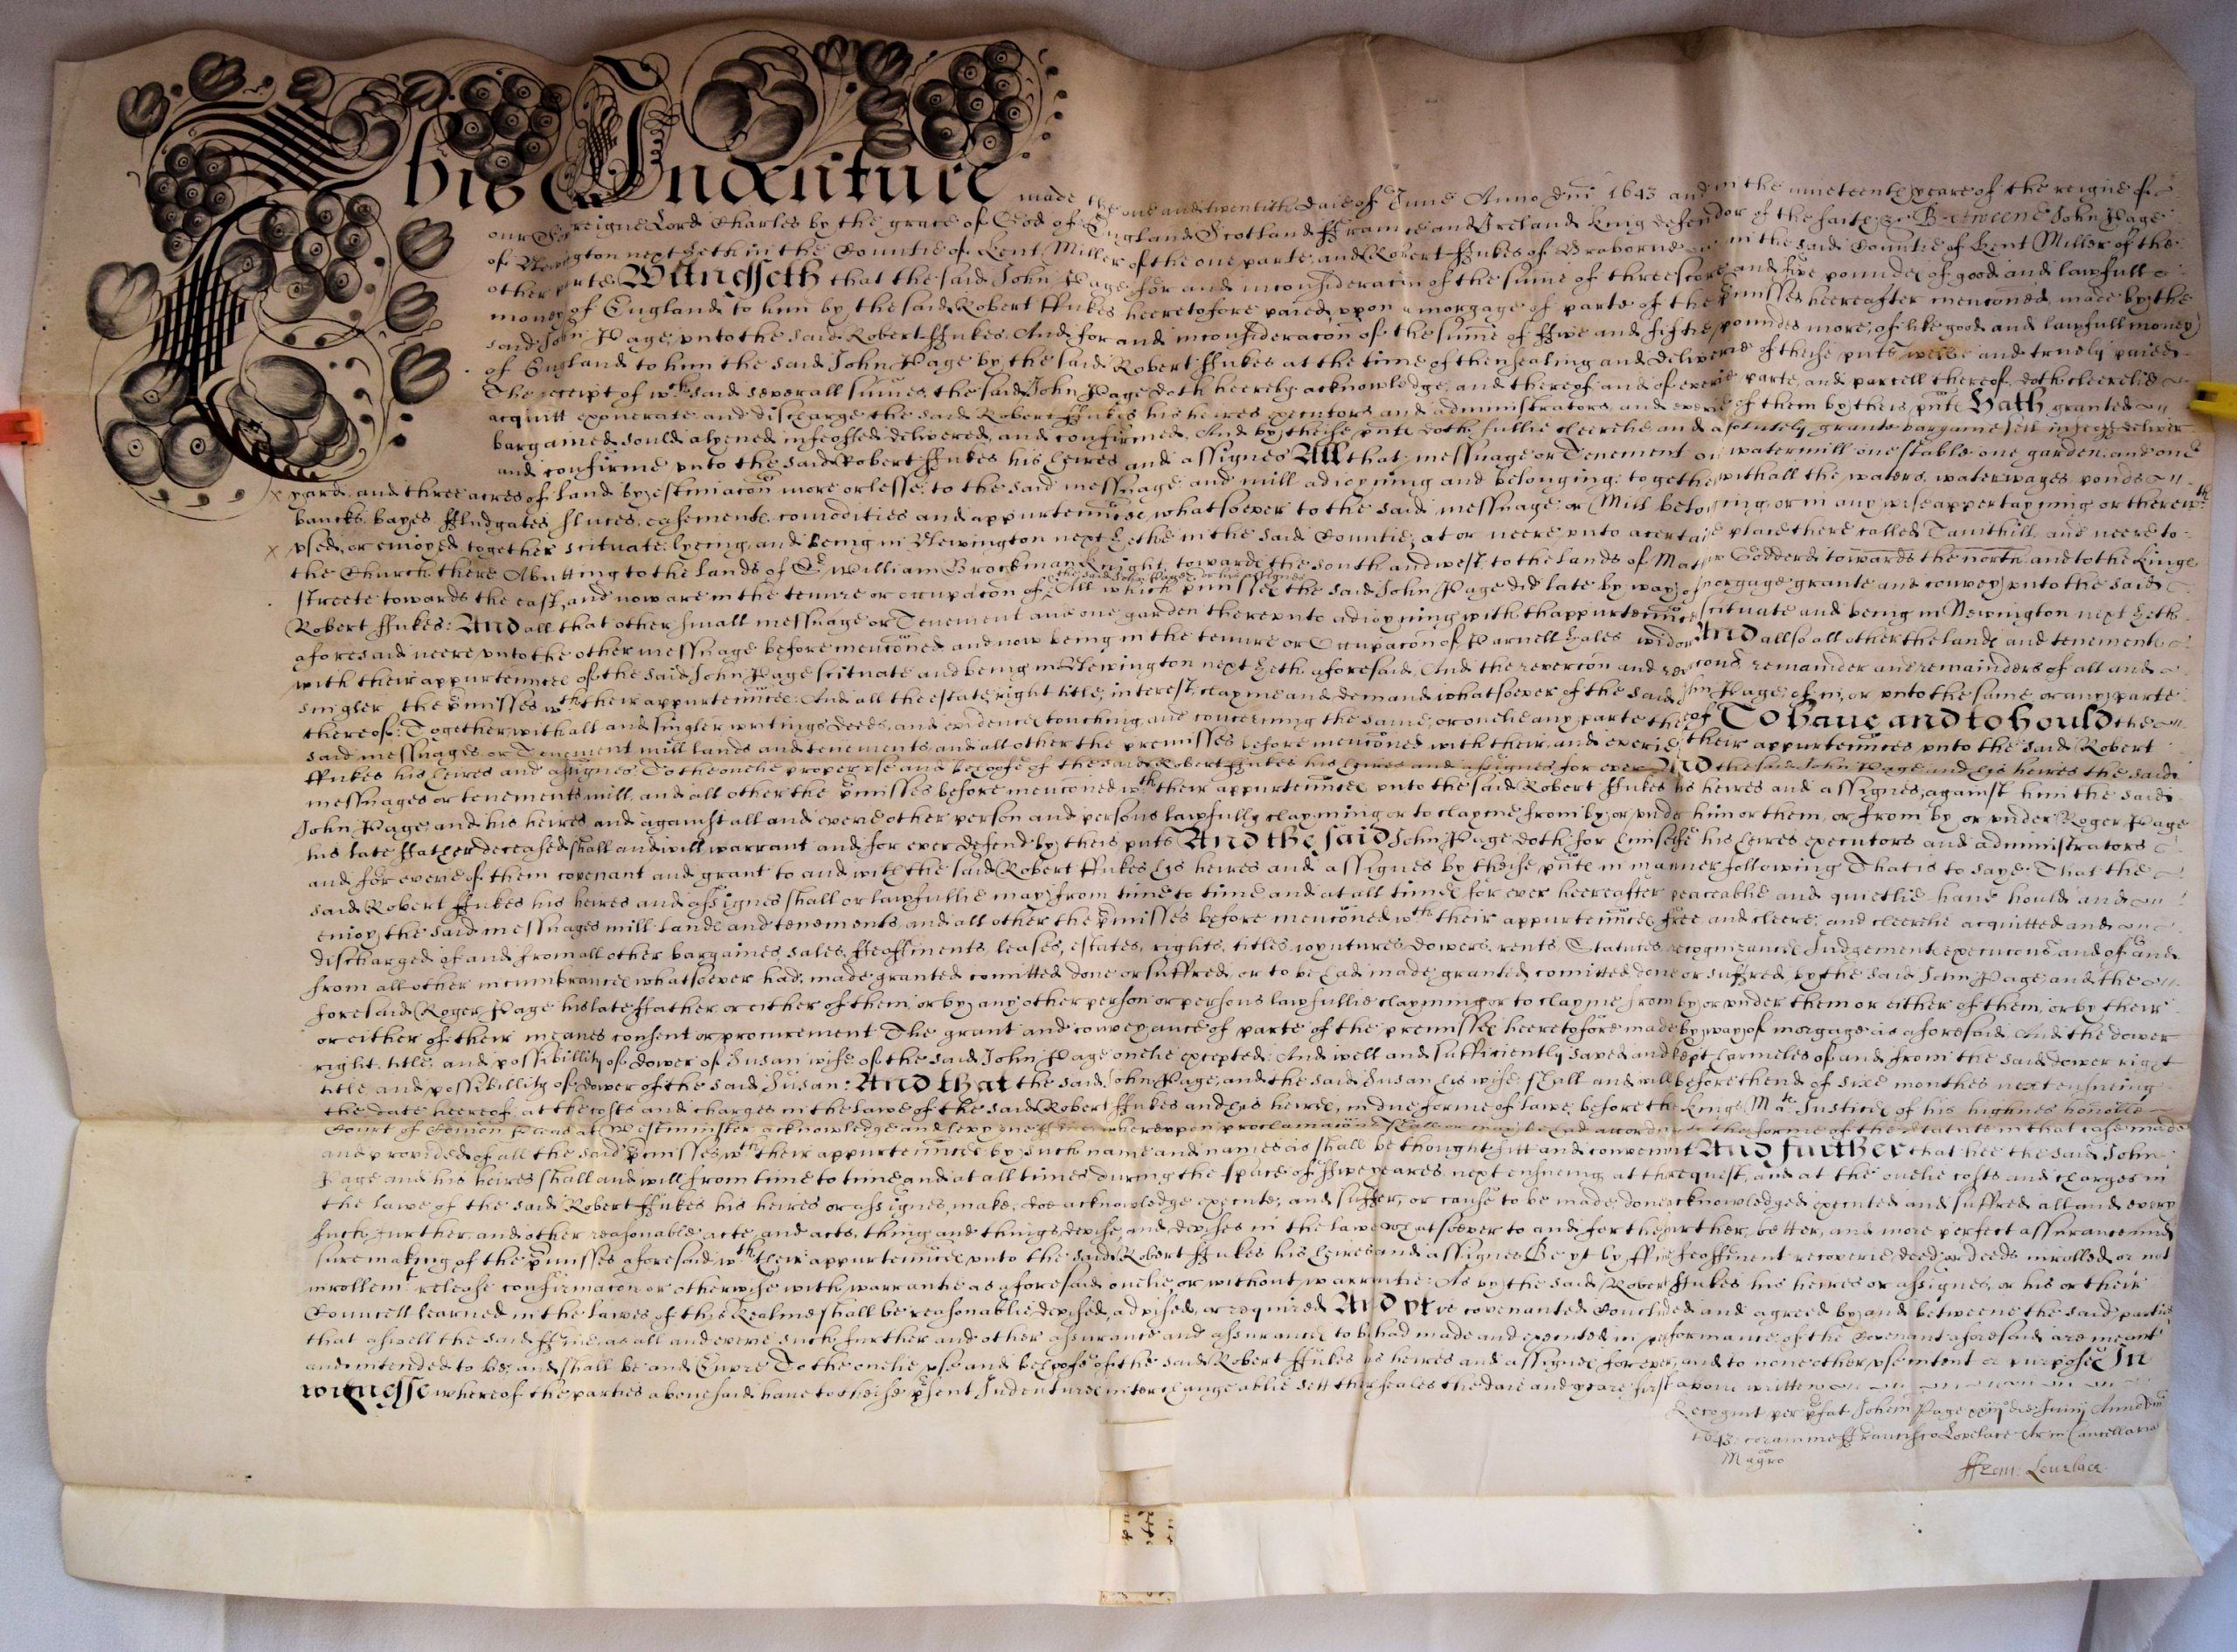 This Indenture made the one and twentith daie of June Anno Dm̄ 1643 and in the nineteenth yeare of the reigne of
our Soveraigne Lord Charles by the grace of God of England Scotland ffrance and Ireland King defendor of the faith &c Betweene John Page
of Newington next Heth in the Countie of Kent Miller of the one parte, and Robert ffukes of Braborne in the said Countie of Kent Miller of the
other parte Witnesseth that the said John Page for and in consideracōn of the sume of threescore and five poundes of good and lawfull
money of England to him by the said Robert ffukes heeretofore paied, vpon a morgage of parte of the p̄misses heereafter menconed made by the
said John Page, vnto the said Robert ffukes. And for and in consideracōn of the sum̄e of ffive and fiftie poundes more, of like good and lawfull money
of England to him the said John Page by the said Robert ffukes at the time of thensealing and deliverie of theise p̄nts well and truely paied
The receipt of wch said severall sum̄es, the said John Page doth heereby acknowledge, and thereof and of everie parte, and parcell thereof, doth cleerelie
acquitt exonerate and discharge the said Robert ffukes his heires executors and administrators, and everie of them by theis p̄nts Hath granted
bargained sould alyened infeoffed delivered, and confirmed, And by theise p̄nts doth fullie cleerelie and absolutely grante bargaine sell infeoff deliver
and confirme vnto the said Robert ffukes his heires and assignes All that messuage or Tenement one watermill one stable one garden, and one
yard, and three acres of land by estimacōn more or lesse, to the said messuage and mill adioyning and belonging: together withall the waters, waterwayes ponds
bancks, bayes ffludgates sluces, easements, comodities and appurtenn̄ces whatsoever to the said messuage, or Mill belonging, or in any wise appertayning or therewth
vsed, or enioyed together scituate lyeing, and being in Newington next Hethe in the said Countie, at or neere vnto a certaine place there called Tamthill and neere to
the Church there Abutting to the lands of Sr William Brockman Knight, towards the south and west, to the lands of Godderd towards the north, and to the Kings
the said John Page or his assignes
streete towards the east, and now are in the tenure or occupacōn of All which p̄misses the said John Page did late by way of morgage grante and convey vnto the said
Robert ffukes: And all that other small messuage or Tenement and one garden therevnto adioyning with thappurtenn̄ces scituate and being in Newington next Heth
aforesaid neere vnto the other messuage before menconed and now being in the tenure or Occupacōn of Parnell Hales widow And allso all other the lands and tenements
with their appurtenn̄ces of the said John Page scituate and being in Newington next Heth aforesaid. And the revercōn and revercōns remainder and remainders of all and
singler the p̄misses wth their appurtenn̄ces: And all the estate, right title, interest, clayme and demand whatsoever of the said John Page, of in, or vnto the same, or any parte
thereof: Together with all and singler writings deeds, and evidences touching, and concerning the same, or onelie any parte thereof To have and to hould the
said messuages or Tenement mill lands and tenements, and all other the premisses before menconed with their, and everie their appurtenn̄ces vnto the said Robert
ffukes his heires and assignes, To the onelie proper vse and behoofe of the said Robert ffukes his heires and assignes for ever And the said John Page and his heires the said
messuages or tenements mill, and all other the p̄misses before menconed wth their appurtenn̄ces vnto the said Robert ffukes his heires and assignes, against him the said
John Page and his heires and against all and everie other person and persons lawfully clayming or to clayme from by or vnder him or them, or from by or vnder Roger Page
his late ffather deceased shall and will warrant and for ever defend by theis p̄nts And the said John Page doth for himselfe his heires executors and administrators
and for everie of them covenant and grant to and with the said Robert ffukes his heires and assignes by theise p̄nts in manner following That is to saye That the
said Robert ffukes his heires and assignes shall or lawfullie may from time to time and at all times for ever heereafter peaceablie and quietlie have hould and
enioy the said messuages mill lands and tenements, and all other the p̄misses before menconed wth their appurtenn̄ces, free and cleere, and cleerelie acquitted and
discharged of and from all other bargaines, sales, ffeoffments, leases, estates, rights, titles, ioyntures, dowers, rents, Statutes, recognizances, Judgements, execucons, and of and
from all other incumbrances whatsoever had, made granted comitted done or suffred, or to be had made granted comitted done or suffred, by the said John Page and the
foresaid Roger Page his late ffather or either of them, or by any other person or persons lawfullie clayming or to clayme from by or vnder them or either of them, or by their
or either of their meanes consent or procurement The grant and conveyance of parte of the premisses heeretofore made by way of morgage as aforesaid And the dower
right, title, and possibillity of dower of Susan wife of the said John Page onelie excepted: And well and sufficiently saved and kept harmeles of and from the said dower right
title, and possibillity of dower of the said Susan: And that the said John Page, and the said Susan his wife shall and will before thend of sixe monthes next ensueing
the date heereof, at the costs and charges in the lawe of the said Robert ffukes and his heires, in due forme of lawe, before the Kings Mats Justices of his highnes honoble
Court of Comōn Pleas at Westminster acknowledge and levy one ffine wherevpon proclamacōns shall or may be had according to the forme of the statute in that case made
and provided, of all the said p̄misses wth their appurtenn̄ces by such name and names as shall be thought fitt and convenient And further that hee the said John
Page and his heires shall and will from time to time, and at all times during the space of ffive yeares next ensueing, at the request, and at the onelie costs and charges in
the lawe of the said Robert ffukes his heires or assignes, make, doe acknowledge execute, and suffer, or cause to be made, done acknowledged executed and suffred all and every
such further and other reasonable acte, and acts, thing and things devise, and devises in the lawe whatsoever to and for the further, better, and more perfect assurance and
sure making of the p̄misses aforesaid, wth their appurtenn̄ces, vnto the said Robert ffukes his heires and assignes Be yt by ffine feoffment recoverie, deed or deeds inrolled or not
inrollemt release confirmacōn or otherwise with warrantie as aforesaid onelie, or without warrantie: As by the said Robert ffukes his heires or assignes, or his or their
Councell learned in the lawes of this Realme shall be reasonablie devised, advised, or required And yt is covenanted concluded and agreed by and betweene the said parties
that aswell the said ffine, as all and everie such further and other assurance and assurances to be had made and executed in performance of the Covenant aforesaid are meant
and intended to be, and shall be and Enure To the onelie vse and behoofe of the said Robert ffukes his heires and assignes, for ever, and to none other vse intent or purpose In
witnesse whereof the parties abovesaid have to theise p̄sent Indentures interchangeablie sett their seales the daie and yeare first above written
Recognit per p̄fat Johem Page die Junij Anno Dm̄
1643: coram me ffrancisco Lovelace Ar in Cancellaria
Magro
ffran: Lovelace